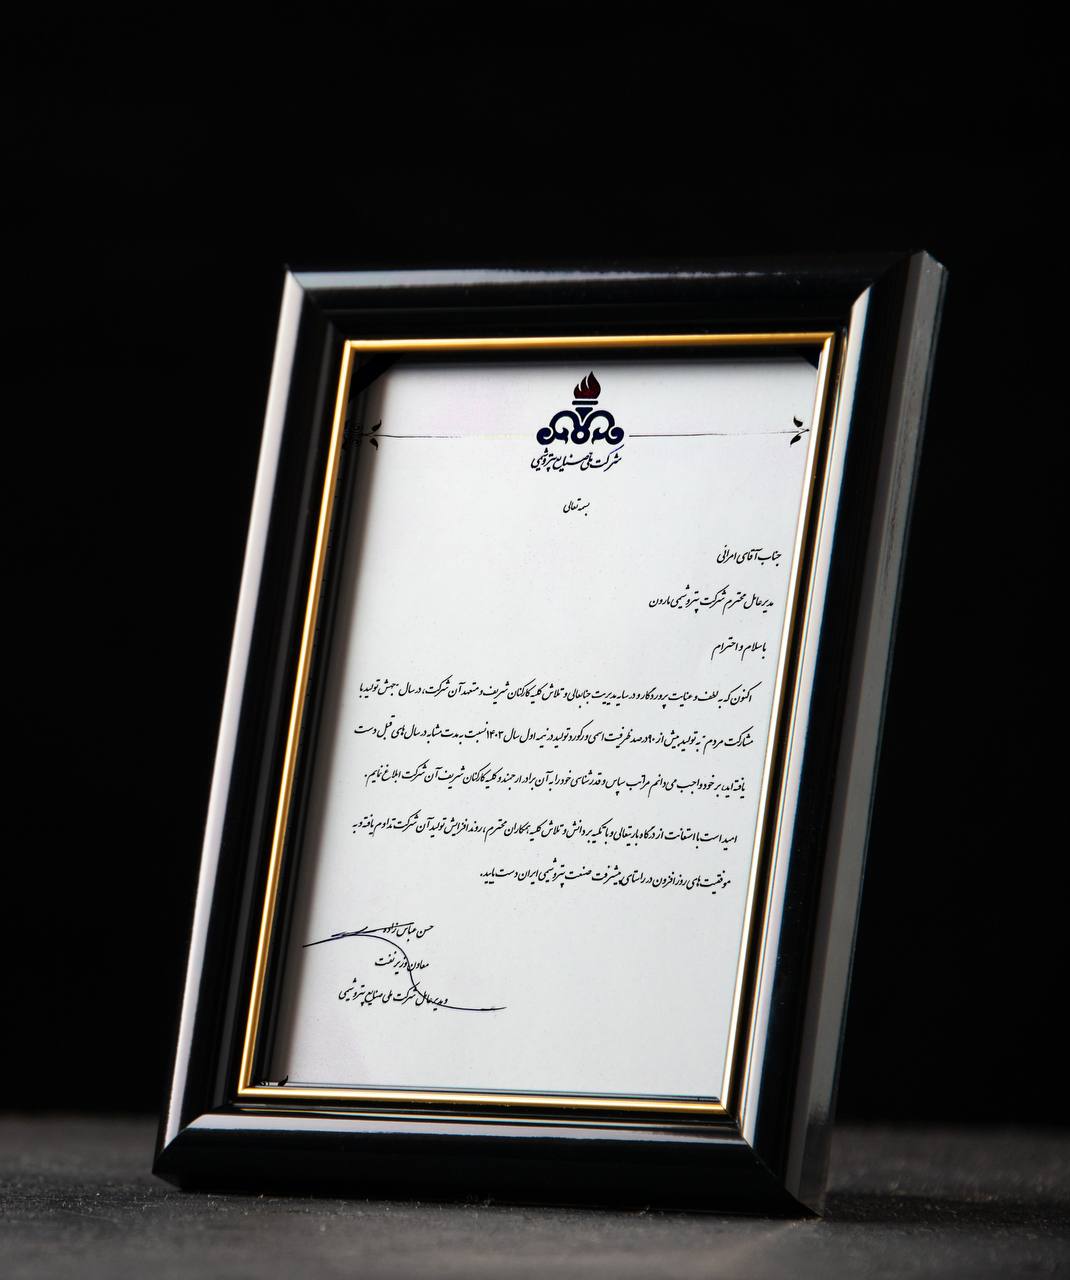 شرکت ملی صنایع پتروشیمی
بسمه تعالی
جناب آقای امرائی
مدیرعامل محترم شرکت پتروشیمی مارون
با سلام و احترام
اکنون که به لطف و عنایت پروردگار و در سایه مدیریت جنابعالی و تلاش کلیه کارکنان شریف و متعهد آن شرکت، در سال "جهش تولید با
مشارکت مردم" به تولید بیش از ۹۰ درصد ظرفیت اسمی و رکورد تولید در نیمه اول سال ۱۴۰۳ نسبت به مدت مشابه در سال های قبل دست
یافته اید، بر خود واجب می دانم مراتب سپاس و قدرشناسی خود را به آن برادر ارجمند و کلیه کارکنان شریف آن شرکت ابلاغ نمایم.
امید است با استعانت از درگاه باریتعالی و با تکیه بر دانش و تلاش کلیه همکاران محترم، روند افزایش تولید آن شرکت تداوم یافته و به
موفقیت های روز افزون در راستای پیشرفت صنعت پتروشیمی ایران دست یابید.
حسن عباس زاده
معاون وزیر نفت
و مدیرعامل شرکت ملی صنایع پتروشیمی